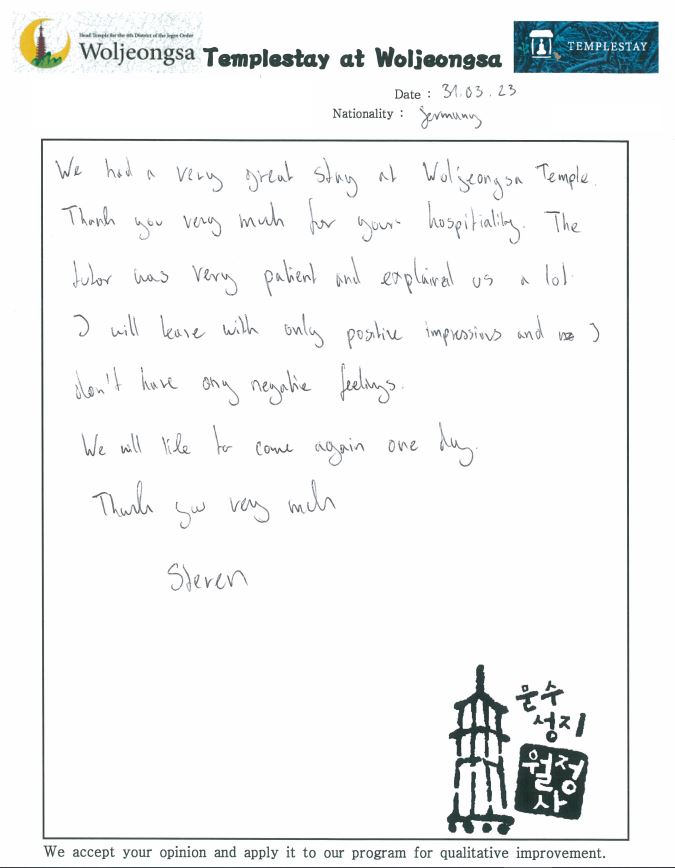 Head Temple for the 4th District of the Jogye Order
Woljeongsa Templestay at Woljeongsa
TEMPLESTAY
Date : 31.03.23
Nationality : Germany
We had a very great stay at Woljeongsa Temple.
Thank you very much for your hospitiality. The
tutor was very patient and explained us a lot.
I will leave with only positive impressions and I
don't have any negative feelings.
We will like to come again one day.
Thank you very much
Steven
문수
성지
월정
사
We accept your opinion and apply it to our program for qualitative improvement.